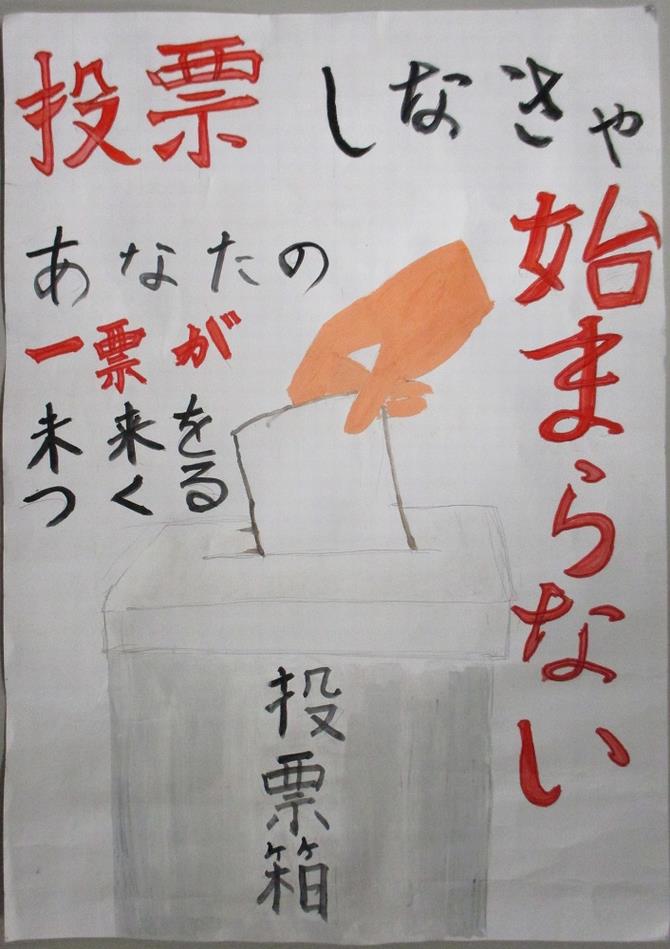 投票しなきゃ
始まらない
あなたの
一票が
未来を
つくる
投票箱